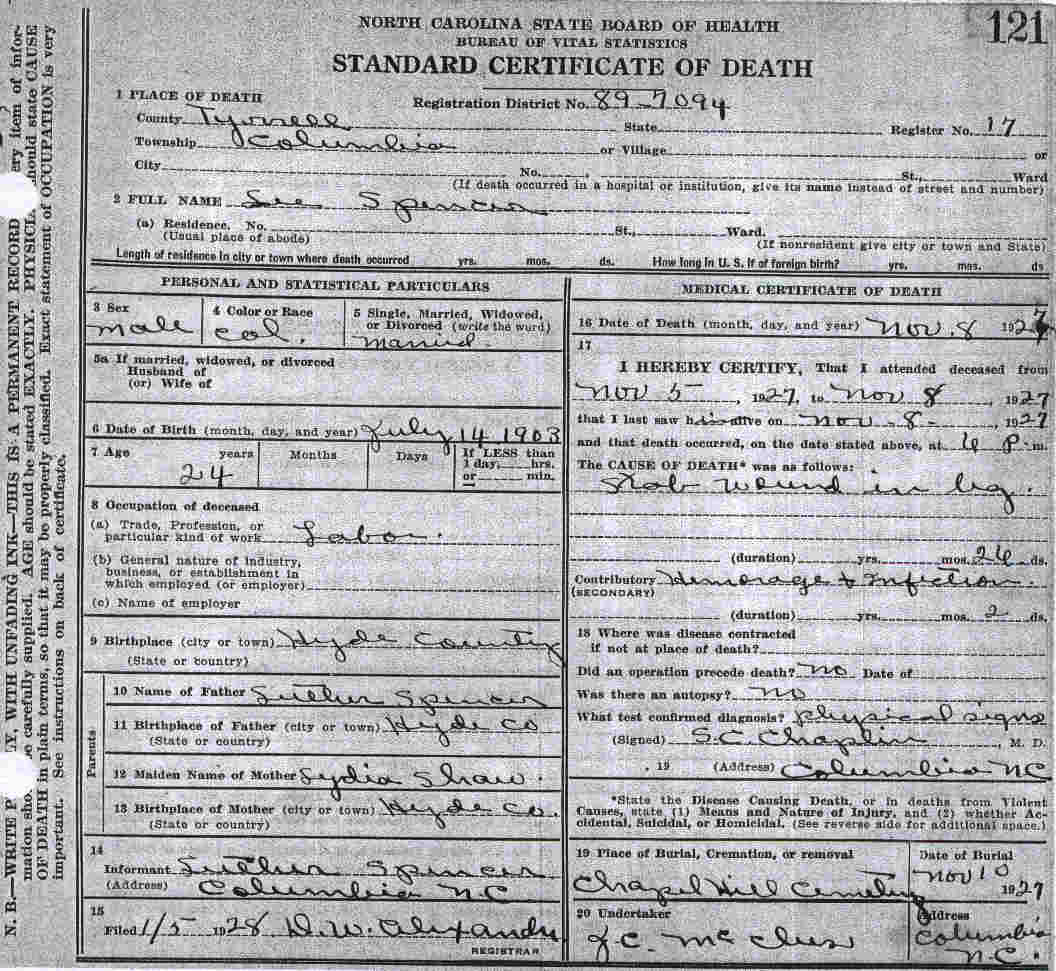 121
NORTH CAROLINA STATE BOARD OF HEALTH
BUREAU OF VITAL STATISTICS
STANDARD CERTIFICATE OF DEATH
1 PLACE OF DEATH
Registration District No. 89-7094
County Tyrrell State Register No. 17
Township Columbia or Village or
City No. St., Ward
(If death occurred in a hospital or institution, give its name instead of street and number)
2 FULL NAME Lee Spencer
(a) Residence. No. St., Ward.
(Usual place of abode) (If nonresident give city or town and State)
Length of residence in city or town where death occurred yrs. mos. ds. How long in U. S. if of foreign birth? yrs. mos. ds
PERSONAL AND STATISTICAL PARTICULARS
3 Sex
male
4 Color or Race
Col.
5 Single, Married, Widowed,
or Divorced (write the word)
Married.
5a If married, widowed, or divorced
Husband of
(or) Wife of
6 Date of Birth (month, day, and year) July 14 1903
7 Age years Months Days If LESS than
1 day, hrs.
or min.
24
8 Occupation of deceased
(a) Trade, Profession, or
particular kind of work Labor.
(b) General nature of industry,
business, or establishment in
which employed (or employer)
(c) Name of employer
9 Birthplace (city or town) Hyde County
(State or country)
Parents
10 Name of Father Luther Spencer
11 Birthplace of Father (city or town) Hyde Co
(State or country)
12 Maiden Name of Mother Lydia Shaw.
13 Birthplace of Mother (city or town) Hyde Co.
(State or country)
14
Informant Luther Spencer
(Address) Columbia N.C
15
Filed 1/5 1928 D.W. Alexander
REGISTRAR
MEDICAL CERTIFICATE OF DEATH
16 Date of Death (month, day, and year) Nov. 8 1927
17
I HEREBY CERTIFY, That I attended deceased from
Nov 5 , 1927, to Nov 8 , 1927
that I last saw him alive on Nov - 8 - , 1927
and that death occurred, on the date stated above, at P m.
The CAUSE OF DEATH* was as follows:
Stab wound in leg.
(duration) yrs. mos. ds.
Contributory Hemorage & Infection.
(SECONDARY)
(duration) yrs. mos. 2 ds.
18 Where was disease contracted
if not at place of death?
Did an operation precede death? no Date of
Was there an autopsy? no
What test confirmed diagnosis? physical signs
(Signed) S.C. Chaplin , M. D.
, 19 (Address) Columbia NC
*State the Disease Causing Death, or in deaths from Violent
Causes, state (1) Means and Nature of Injury, and (2) whether Ac-
cidental, Suicidal, or Homicidal. (See reverse side for additional space.)
19 Place of Burial, Cremation, or removal
Chapel Hill Cemetery
Date of Burial
Nov 10 1927
20 Undertaker
J.C. Mc
Address
Columbia
N.C.
N. B.—WRITE P Y, WITH UNFADING INK—THIS IS A PERMANENT RECORD ery item of infor-
mation sho e carefully supplied. AGE should be stated EXACTLY. PHYSICIA hould state CAUSE
OF DEATH in plain terms, so that it may be properly classified. Exact statement of OCCUPATION is very
important. See instructions on back of certificate.